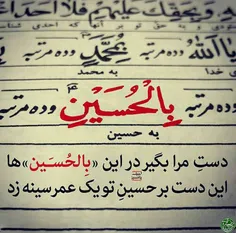 وَبِحَقِّكَ عَلَيْهِمْ فَلا اَحَدَ
یا اَللهُ وده مرتبه بِمُحَمَّدٍ وده مرتبه
خدا به محمد
وده مرتبه بِالْحُسَيْنِ وده مرتبه
به حسین
دستِ مرا بگیر در این «بِالحُسَین» ها
این دست بر حسینِ تو یک عمر سینه زد